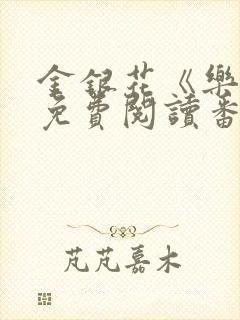 金銀花《樂
免費閱讀番
芃芃嘉木